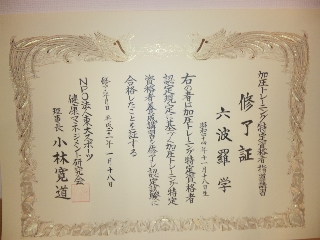 加圧トレーニング特定資格者指導講習
修了証
六波羅 学
昭和四十四年十一月十八日生
右の者は加圧トレーニング特定資格者
認定規定に基づく加圧トレーニング特定
資格者養成講習を修了し認定試験に
合格したことを証する
平成二十一年一月十八日
NPO法人東大スポーツ
健康マネジメント研究会
理事長 小林寛道